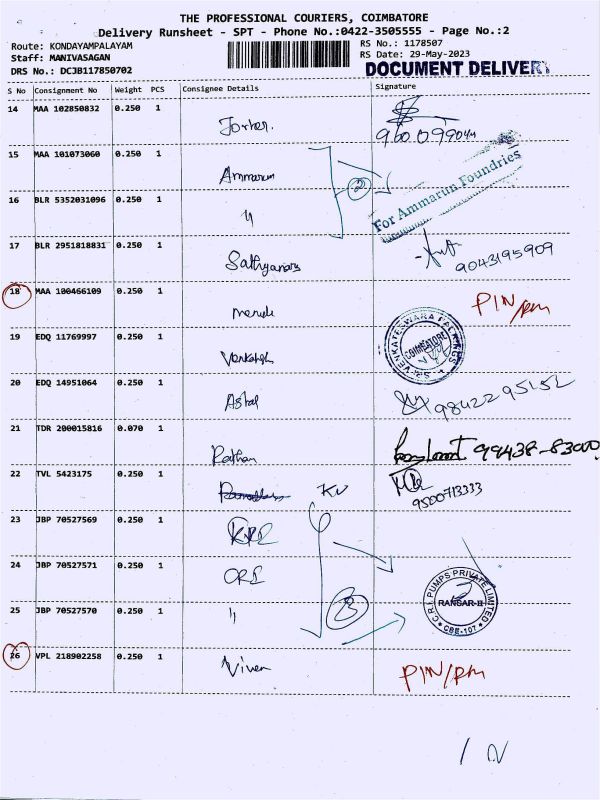 THE PROFESSIONAL COURIERS, COIMBATORE
Delivery Runsheet - SPT - Phone No.:0422-3505555 - Page No.:2
Route: KONDAYAMPALAYAM
RS No.: 1178507
Staff: MANIVASAGAN
RS Date: 29-May-2023
DRS No.: DCJB117850702
DOCUMENT DELIVERY
S No Consignment No Weight PCS Consignee Details Signature
14 MAA 102850832 0.250 1
15 MAA 101073060 0.250 1 Ammarun
2
For Ammarun Foundries
16 BLR 5352031096 0.250 1 "
17 BLR 2951818831 0.250 1 9043195909
18 MAA 100466109 0.250 1 PIN/RM
19 EDQ 11769997 0.250 1 Venkatesh
S.R. VENKATESWARA PACKINGS
COIMBATORE
20 EDQ 14951064 0.250 1 9842295152
21 TDR 200015816 0.070 1 Rathan 99438-83000
22 TVL 5423175 0.250 1 KV 9500713333
23 JBP 70527569 0.250 1
24 JBP 70527571 0.250 1 CRI
25 JBP 70527570 0.250 1 " 3
C.R.I. PUMPS PRIVATE LIMITED
RANSAR-II
CBE-107
26 VPL 218902258 0.250 1 PIN/RM